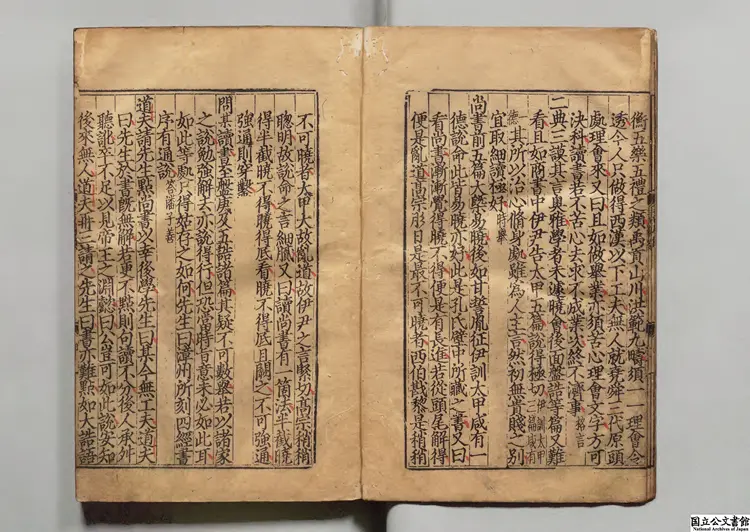 衡五樂五禮之類禹貢山川洪範九疇須一一理會令
透今人只做得西漢以下工夫無人就堯舜三代原頭
處理會來又曰且如做舉業亦須苦心理會文字方可
決科讀書若不苦心去求不成業以終不濟事 銖言
二典三謨其言奧雅學者未遽曉會後面盤誥等篇又難
看且如商書中伊尹告太甲五篇說得極切 伊訓太甲咸有一德
其所以治心脩身處雖為人主言然初無貴賤之別
宜取細讀極好 時舉
尚書前五篇大槩易曉後如甘誓胤征伊訓太甲咸有一
德說命此皆易曉亦好此是孔氏壁中所藏之書又曰
看尚書漸漸覺得曉不得便是有長進若從頭尾解得
便是亂道高宗肜日是最不可曉者西伯戡黎是稍稍
不可曉者太甲大故亂道故伊尹之言緊切高宗稍稍
聰明故說命之言細膩又曰讀尚書有一箇法半截曉
得半截曉不得曉得底看曉不得底且闕之不可強通
強通則穿鑿
問其讀書至盤庚及五誥諸篇其疑不可數舉若以諸家
之說勉強解去亦說得行但恐當時指意未必如此耳
如此等處只得姑存之如何先生曰漳州所刻四經書
序有通說 答潘子善
道夫請先生點尚書以幸後學先生曰某今無工夫道夫
曰先生於書既無解若更不點則句讀不分後人承舛
聽訛卒不足以見帝王之淵懿曰公豈可如此說安知
後來無人道夫再三請之先生曰書亦難點如大誥語
國立公文書館
National Archives of Japan